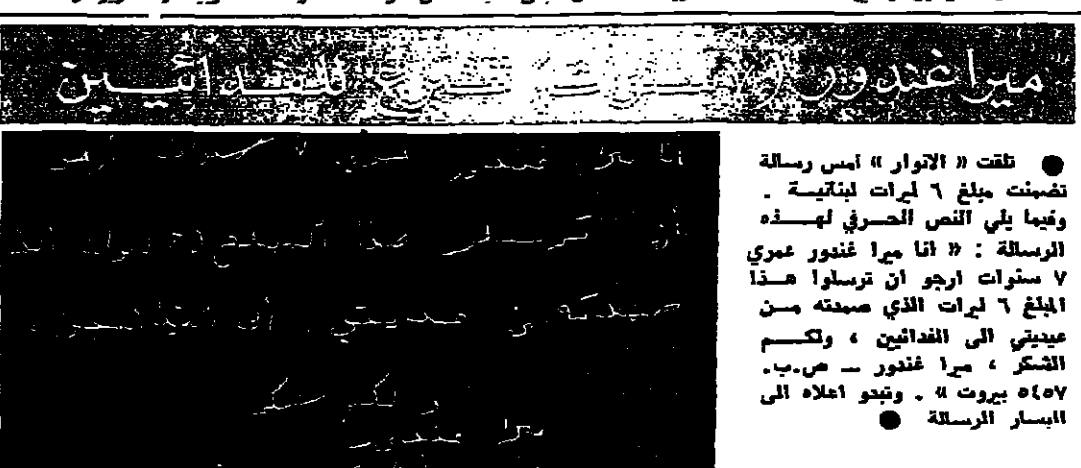 ميرا غندور (٧ سنوات) تتبرع للفدائيين
● تلقت « الانوار » امس رسالة
تضمنت مبلغ ٦ ليرات لبنانيــة .
وفيما يلي النص الحــرفي لهــذه
الرسالة : « انا ميرا غندور عمري
٧ سنوات ارجو ان ترسلوا هــذا
المبلغ ٦ ليرات الذي صمدته مــن
عيديتي الى الفدائيين ، ولكــم
الشكر ، ميرا غندور ــ ص.ب.
٥٤٥٧ بيروت » . وتبدو اعلاه الى
اليسار الرسالة ●
انا ميرا غندور عمري ٧ سنوات ارجو
أن ترسلوا هذا المبلغ ٦ ليرات الذي
صمدته من عيديتي إلى الفدائيين
ولكم الشكر
ميرا غندور